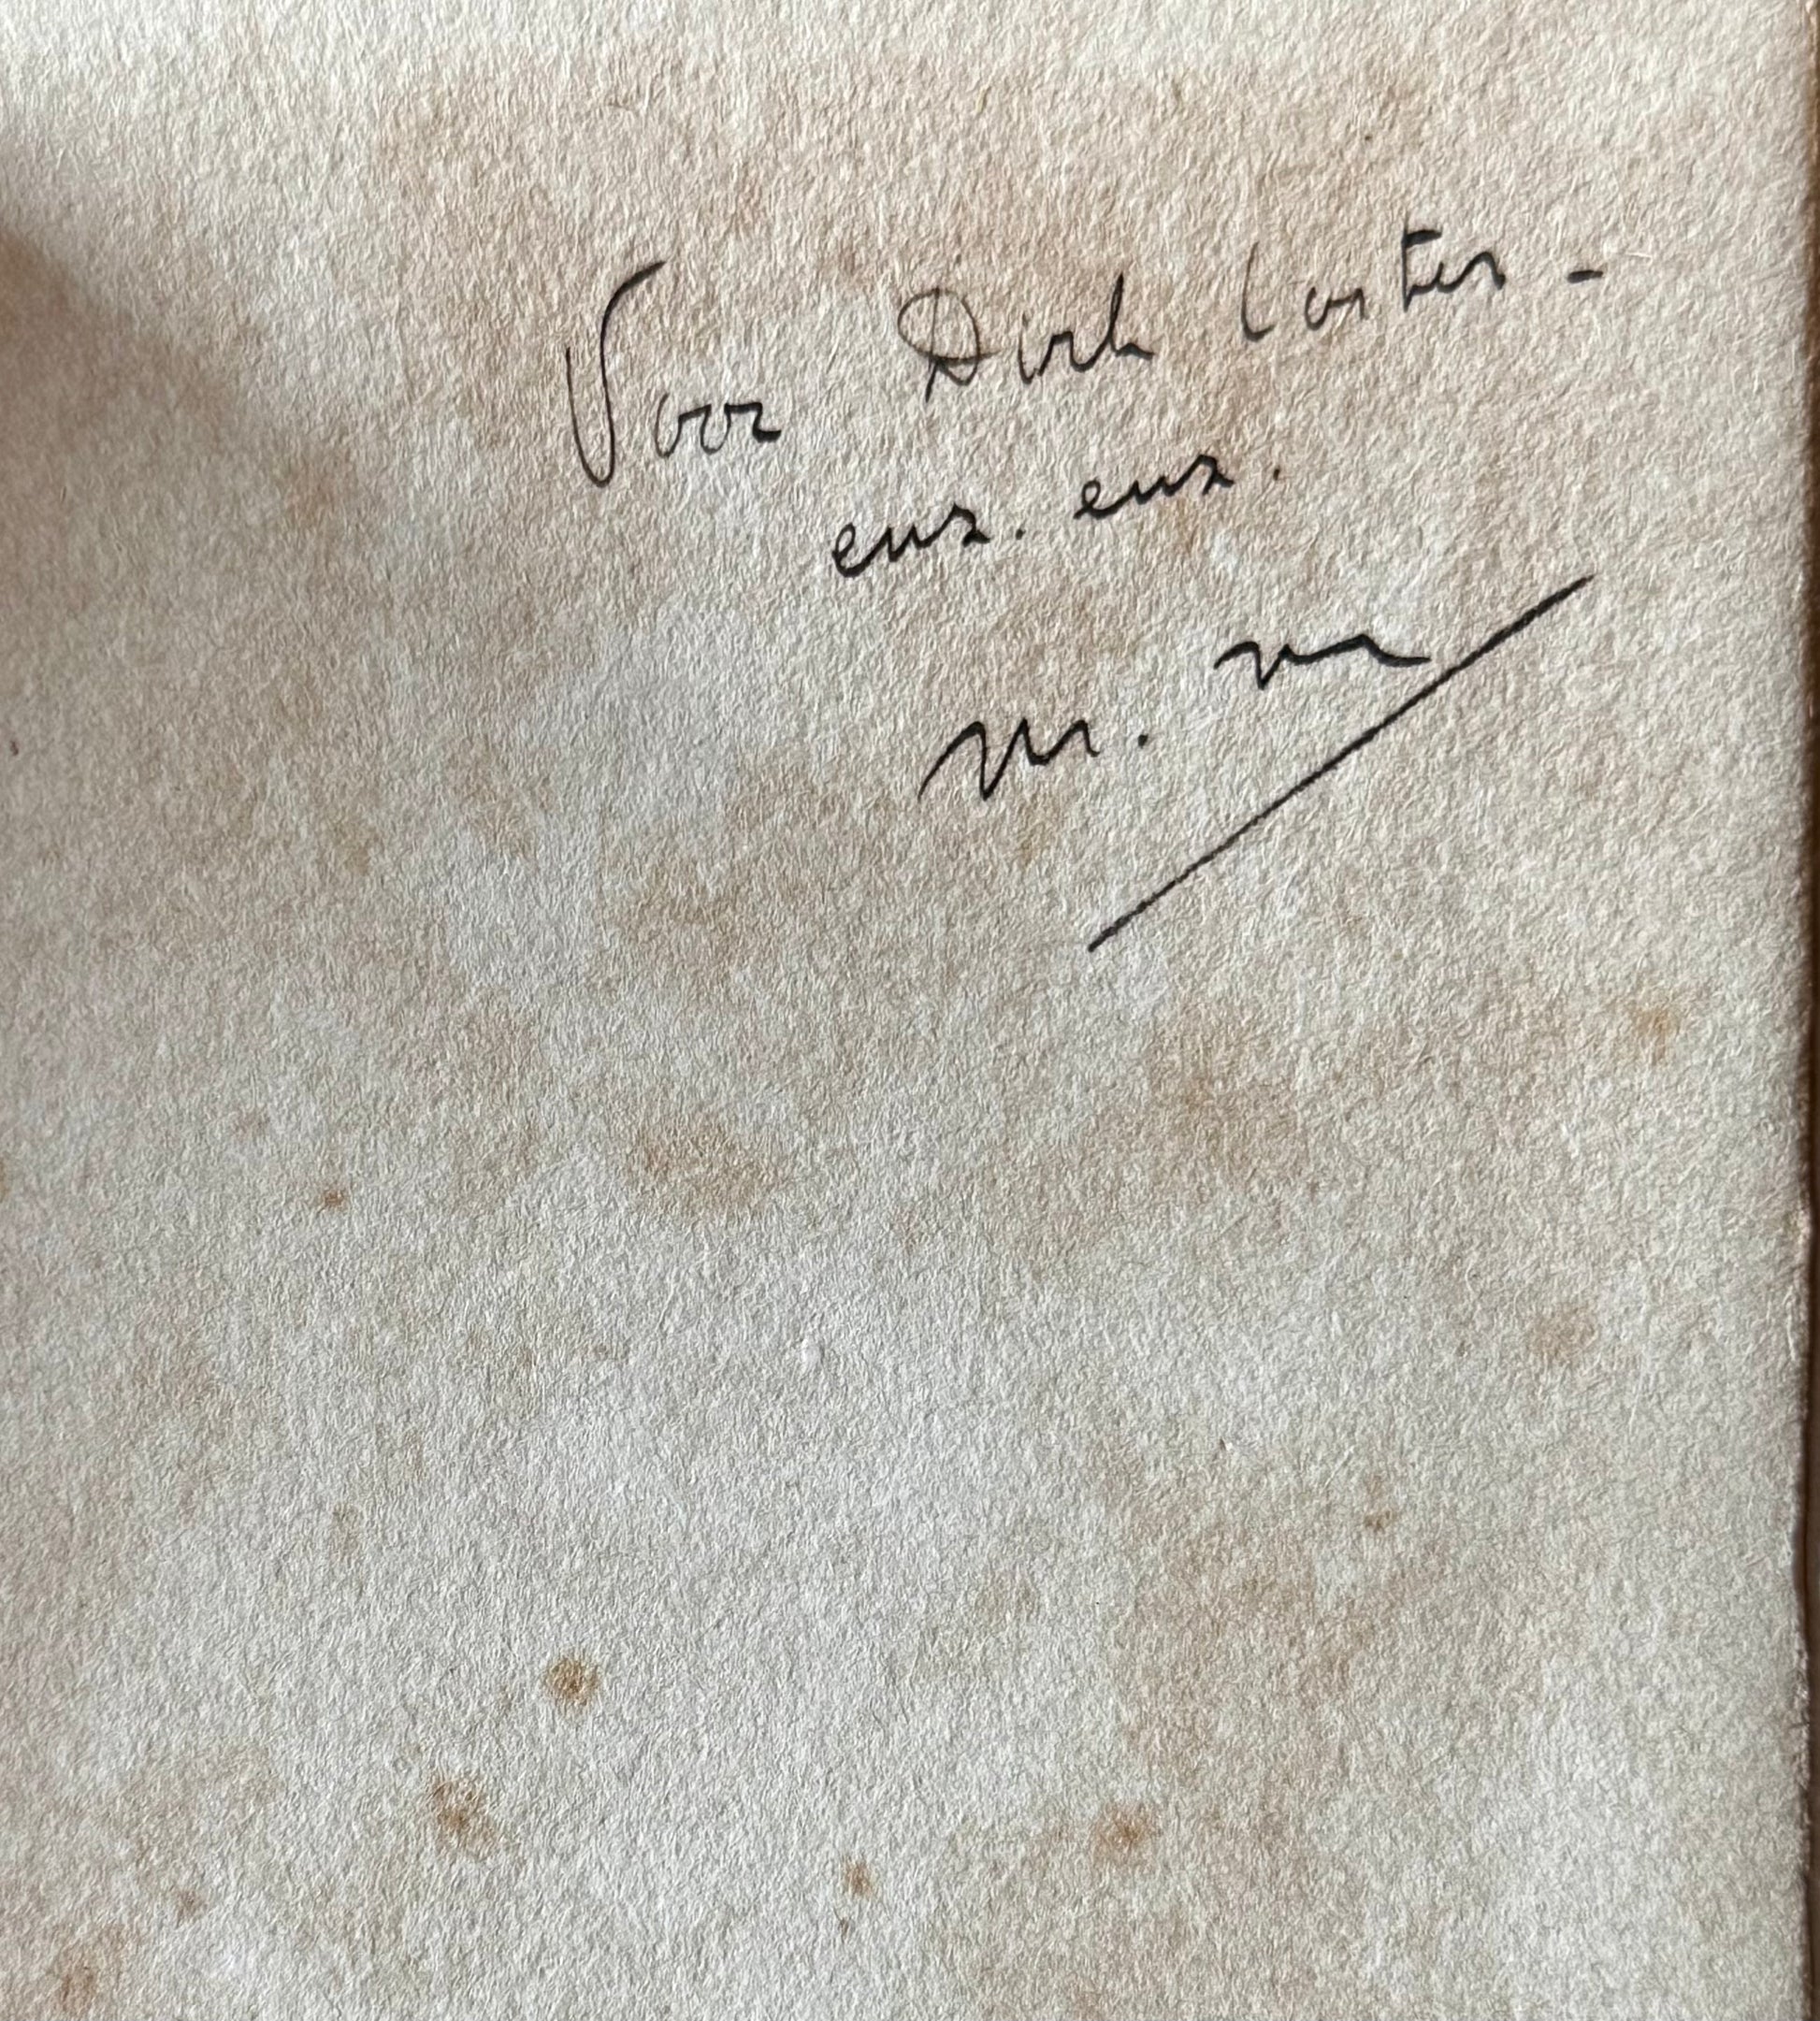 Voor Dirk Coster -
enz. enz.
M. N